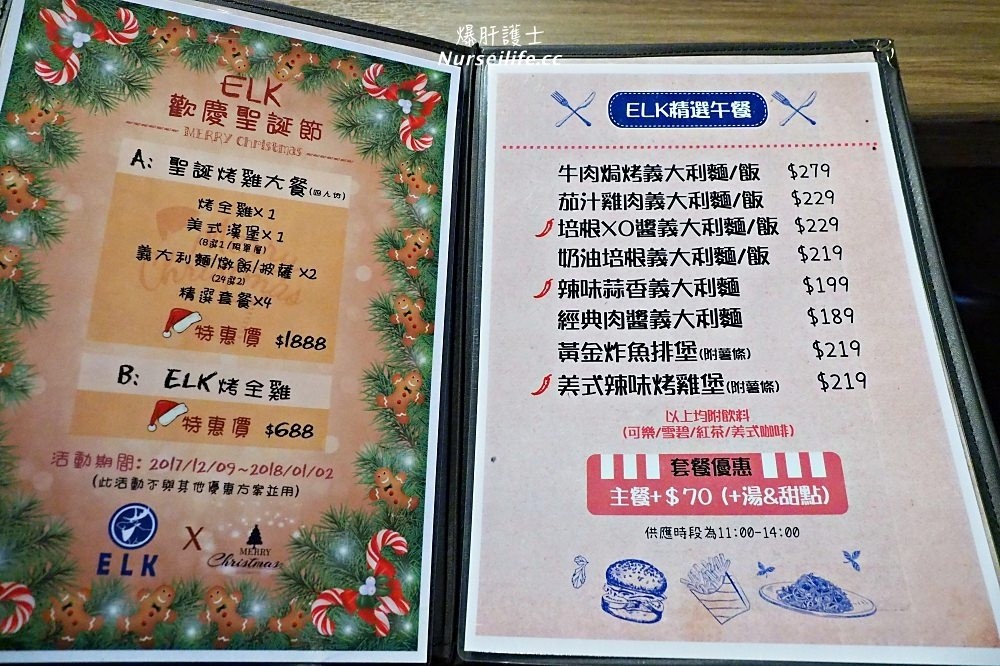 爆肝護士
Nurseilife.cc
ELK
歡慶聖誕節
MERRY Christmas
A: 聖誕烤雞大餐(四人份)
烤全雞X1
美式漢堡X1
(8選1/附單層)
義大利麵/燉飯/披薩 X2
(24選2)
精選套餐X4
特惠價 $1888
B: ELK烤全雞
特惠價 $688
活動期間: 2017/12/09~2018/01/02
(此活動不與其他優惠方案並用)
ELK
X
MERRY
Christmas
ELK精選午餐
牛肉焗烤義大利麵/飯 $279
茄汁雞肉義大利麵/飯 $229
培根XO醬義大利麵/飯 $229
奶油培根義大利麵/飯 $219
辣味蒜香義大利麵 $199
經典肉醬義大利麵 $189
黃金炸魚排堡(附薯條) $219
美式辣味烤雞堡(附薯條) $219
以上均附飲料
(可樂/雪碧/紅茶/美式咖啡)
套餐優惠
主餐+$70 (+湯&甜點)
供應時段為11:00-14:00